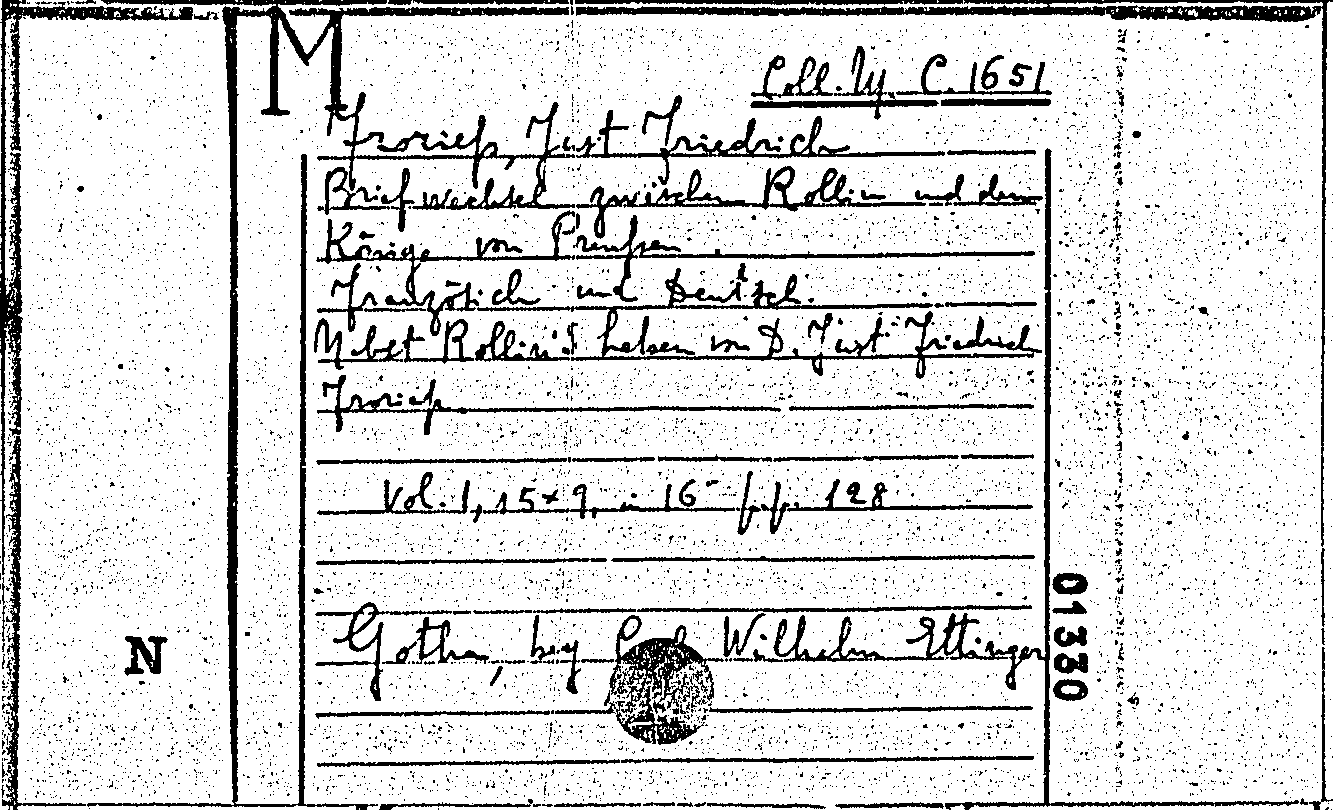 M
Coll. M. C. 1651
Froriep, Just Friedrich
Briefwechsel zwischen Rollin und dem
Könige von Preußen.
Französich und Deutsch.
Nebst Rollin's Leben von D. Just Friedrich
Froriep.
Vol. 1, 15×9, in 16° p.p. 128
Gotha, bey Wilhelm Ettinger
01330
N